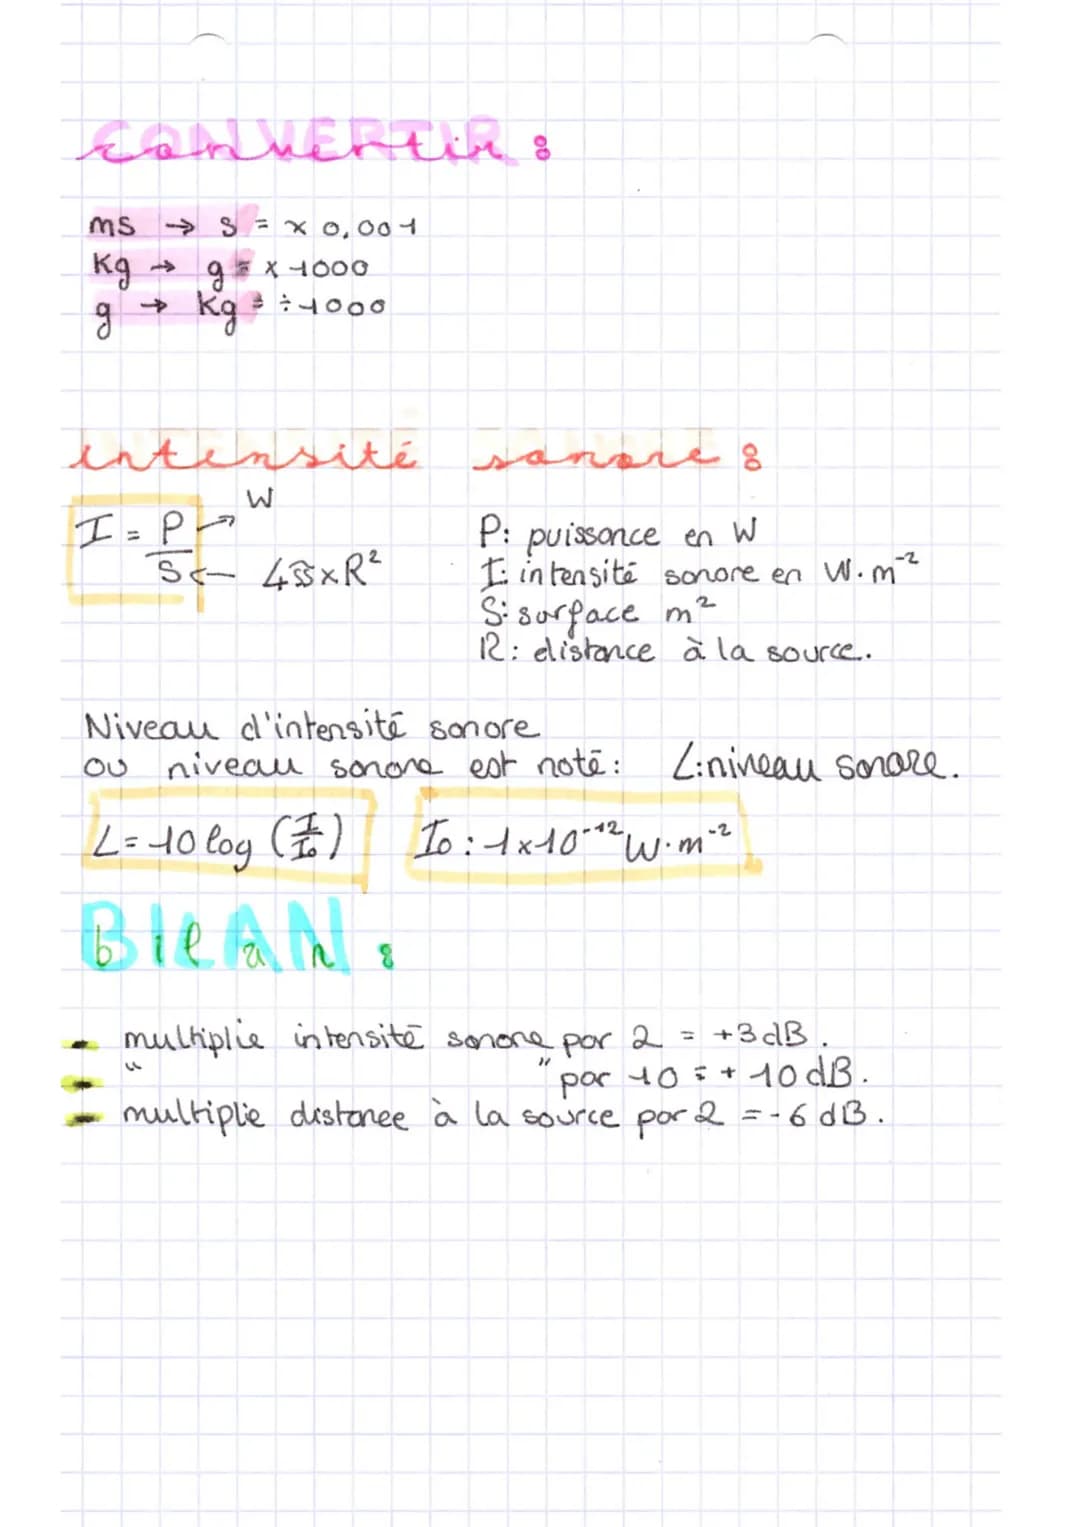 convertir :
ms → s = x 0,001
Kg → g = x 1000
g → Kg = ÷1000
intensité sonore :
I = P/S → W
← 4π x R²
P: puissance en W
I: intensité sonore en W.m⁻²
S: surface m²
R: distance à la source.
Niveau d'intensité sonore
ou niveau sonore est noté : L: niveau sonore.
L = 10 log (I/I₀) I₀ : 1x10⁻¹² W.m⁻²
BILAN :
- multiplie intensité sonore par 2 = +3 dB.
- " " par 10 = + 10 dB.
- multiplie distance à la source par 2 = - 6 dB.